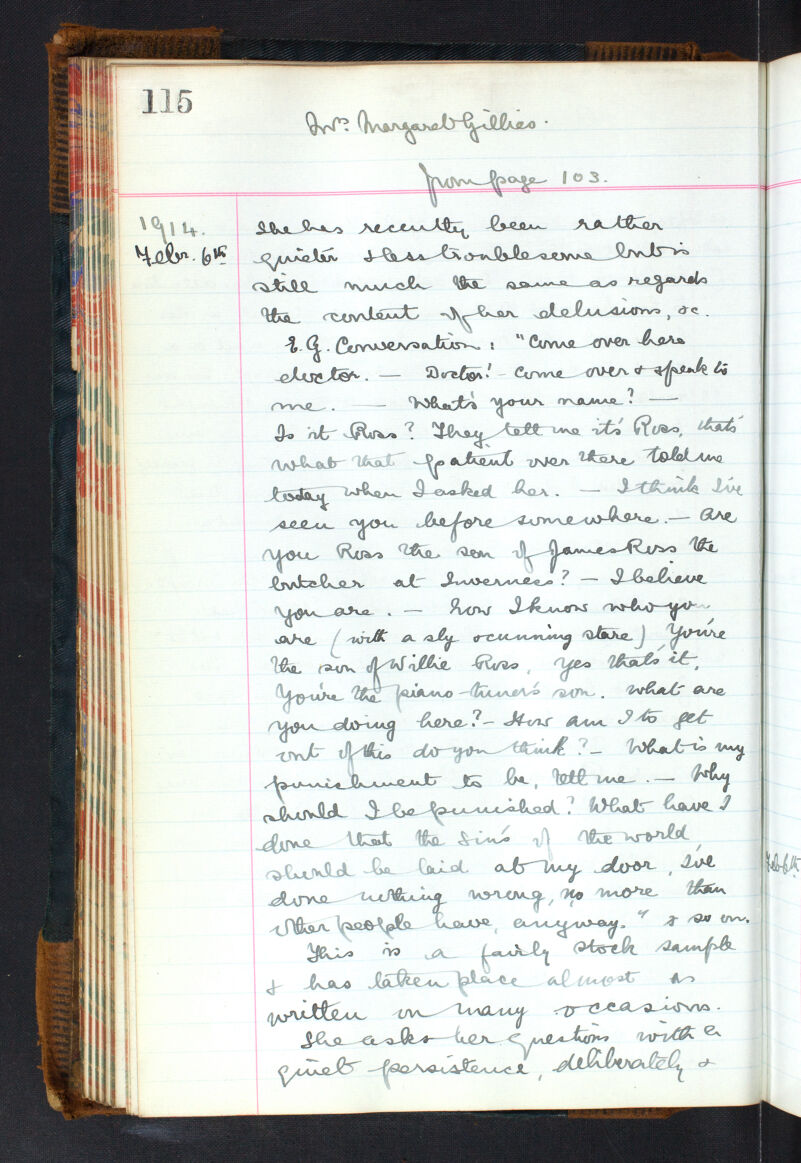 115
Mrs Margaret Gillies.
from page 103.
1914.
Febr. 6th
She has recently been rather
quieter & less troublesome but is
still much the same as regards
the content of her delusions, &c.
E.G. Conversation: "Come over here
doctor. — Doctor! - Come over & speak to
me. — What's your name? —
Is it Ross? They tell me it's Ross, that's
what that patient over there told me
today when I asked her. — I think I've
seen you before somewhere. — Are
you Ross the son of James Ross the
butcher at Inverness? — I believe
you are. — Now I know who you
are (with a sly & cunning stare) You're
the son of Willie Ross, yes that's it,
You're the piano-tuner's son. What are
you doing here? — How am I to get
out of this do you think? — What is my
punishment to be, tell me. — Why
should I be punished? What have I
done that the sins of the world
should be laid at my door, I've
done nothing wrong, no more than
other people have, anyway." & so on.
This is a fairly stock sample
& has taken place almost as
written on many occasions.
She asks her questions with a
quiet persistence, deliberately &
Feb 6th